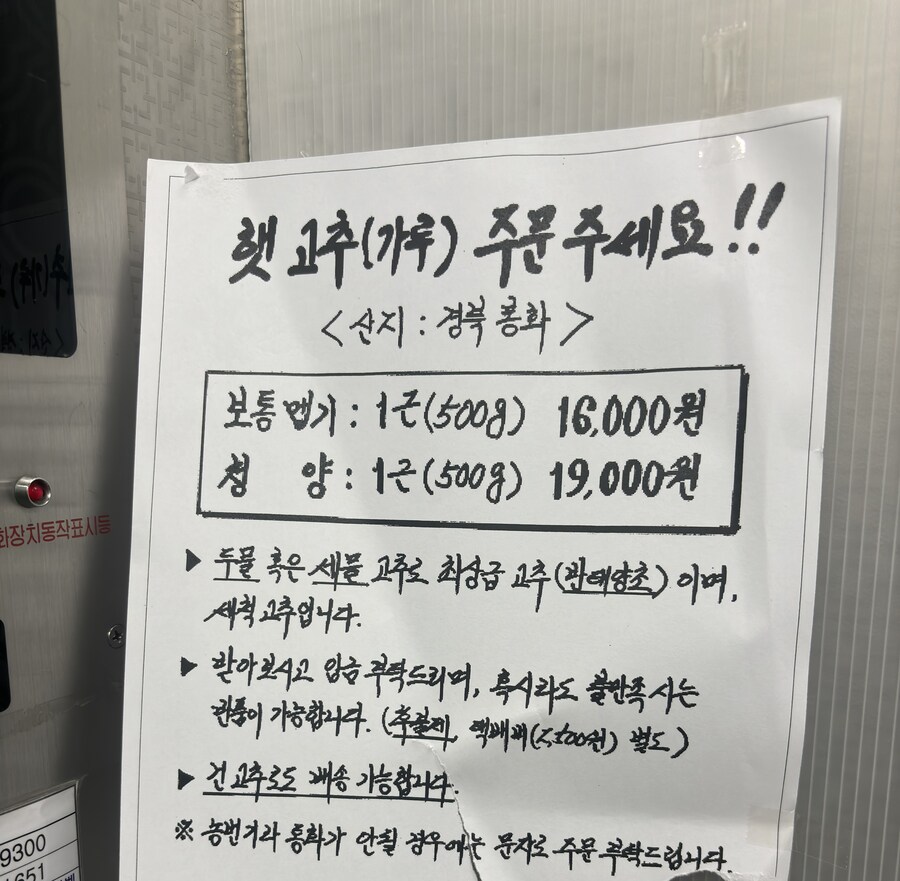 햇 고추(가루) 주문 주세요!!
<산지 : 경북 봉화>
보통맵기 : 1근(500g) 16,000원
청 양 : 1근(500g) 19,000원
▶ 두물 혹은 세물 고추로 최상급 고추(반태양초)이며,
세척고추입니다.
▶ 받아보시고 입금 부탁드리며, 혹시라도 불만족시는
반품이 가능합니다. (후불제, 택배비 별도)
▶ 건고추로도 배송 가능합니다.
※ 농번기라 통화가 안될 경우에는 문자로 주문 부탁드립니다.
화장치동작표시등
9300
651